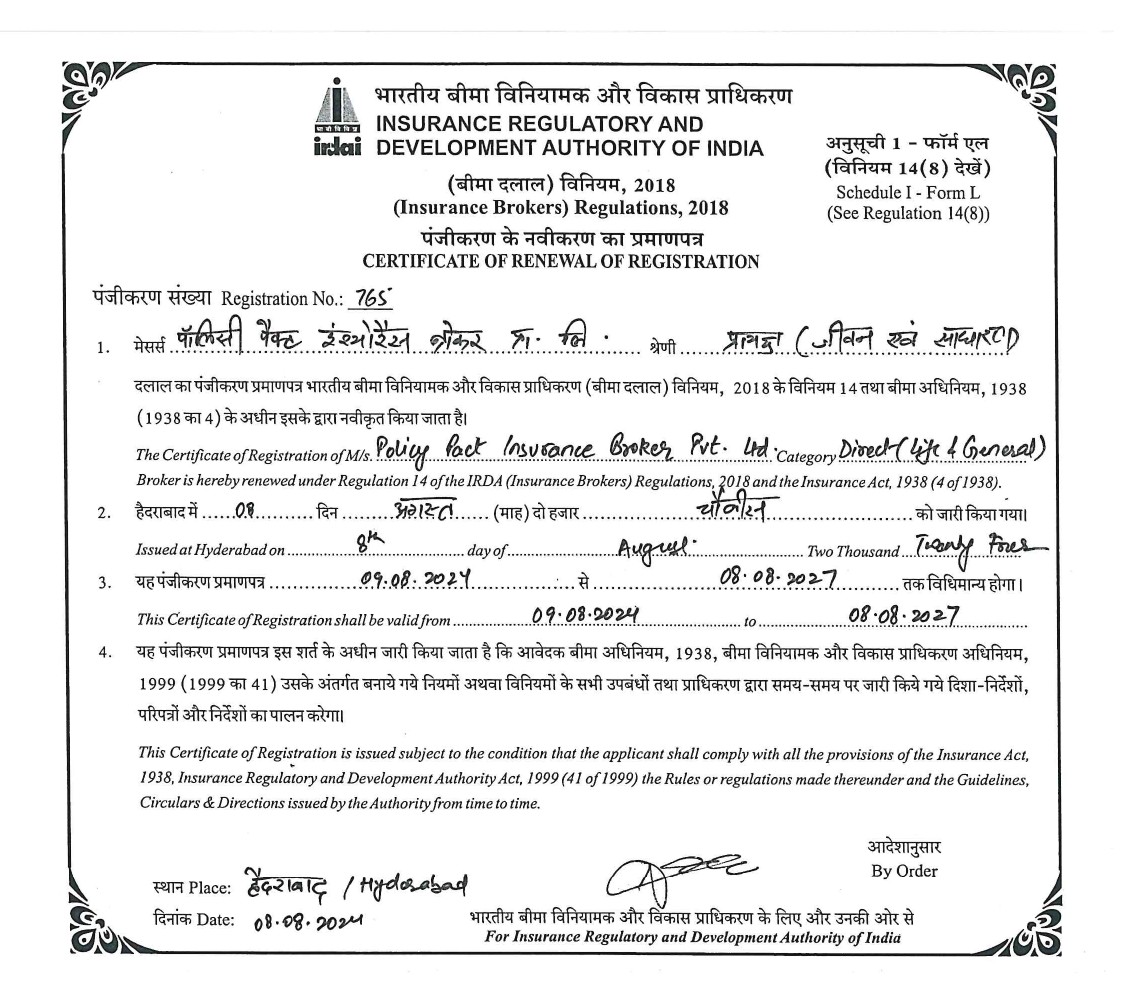 भारतीय बीमा विनियामक और विकास प्राधिकरण
INSURANCE REGULATORY AND
DEVELOPMENT AUTHORITY OF INDIA
भा बी वि वि प्रा
irdai
अनुसूची 1 - फॉर्म एल
(विनियम 14(8) देखें)
Schedule I - Form L
(See Regulation 14(8))
(बीमा दलाल) विनियम, 2018
(Insurance Brokers) Regulations, 2018
पंजीकरण के नवीकरण का प्रमाणपत्र
CERTIFICATE OF RENEWAL OF REGISTRATION
पंजीकरण संख्या Registration No.: 765
1. मेसर्स पॉलिसी पैक्ट इंश्योरैंस ब्रोकर प्रा. लि. श्रेणी (जीवन एवं साधारण)
दलाल का पंजीकरण प्रमाणपत्र भारतीय बीमा विनियामक और विकास प्राधिकरण (बीमा दलाल) विनियम, 2018 के विनियम 14 तथा बीमा अधिनियम, 1938
(1938 का 4) के अधीन इसके द्वारा नवीकृत किया जाता है।
The Certificate of Registration of M/s. Policy Pact Insurance Broker Pvt. Ltd. Category Direct (Life & General)
Broker is hereby renewed under Regulation 14 of the IRDA (Insurance Brokers) Regulations, 2018 and the Insurance Act, 1938 (4 of 1938).
2. हैदराबाद में ......08............ दिन ......अगस्त...... (माह) दो हजार ......चौबीस...... को जारी किया गया।
Issued at Hyderabad on ......8th...... day of ......August...... Two Thousand Twenty Four
3. यह पंजीकरण प्रमाणपत्र ......09.08.2024...... से ......08.08.2027...... तक विधिमान्य होगा।
This Certificate of Registration shall be valid from ......09.08.2024...... to ......08.08.2027......
4. यह पंजीकरण प्रमाणपत्र इस शर्त के अधीन जारी किया जाता है कि आवेदक बीमा अधिनियम, 1938, बीमा विनियामक और विकास प्राधिकरण अधिनियम,
1999 (1999 का 41) उसके अंतर्गत बनाये गये नियमों अथवा विनियमों के सभी उपबंधों तथा प्राधिकरण द्वारा समय-समय पर जारी किये गये दिशा-निर्देशों,
परिपत्रों और निर्देशों का पालन करेगा।
This Certificate of Registration is issued subject to the condition that the applicant shall comply with all the provisions of the Insurance Act,
1938, Insurance Regulatory and Development Authority Act, 1999 (41 of 1999) the Rules or regulations made thereunder and the Guidelines,
Circulars & Directions issued by the Authority from time to time.
आदेशानुसार
By Order
स्थान Place: हैदराबाद / Hyderabad
दिनांक Date: 08.08.2024
भारतीय बीमा विनियामक और विकास प्राधिकरण के लिए और उनकी ओर से
For Insurance Regulatory and Development Authority of India